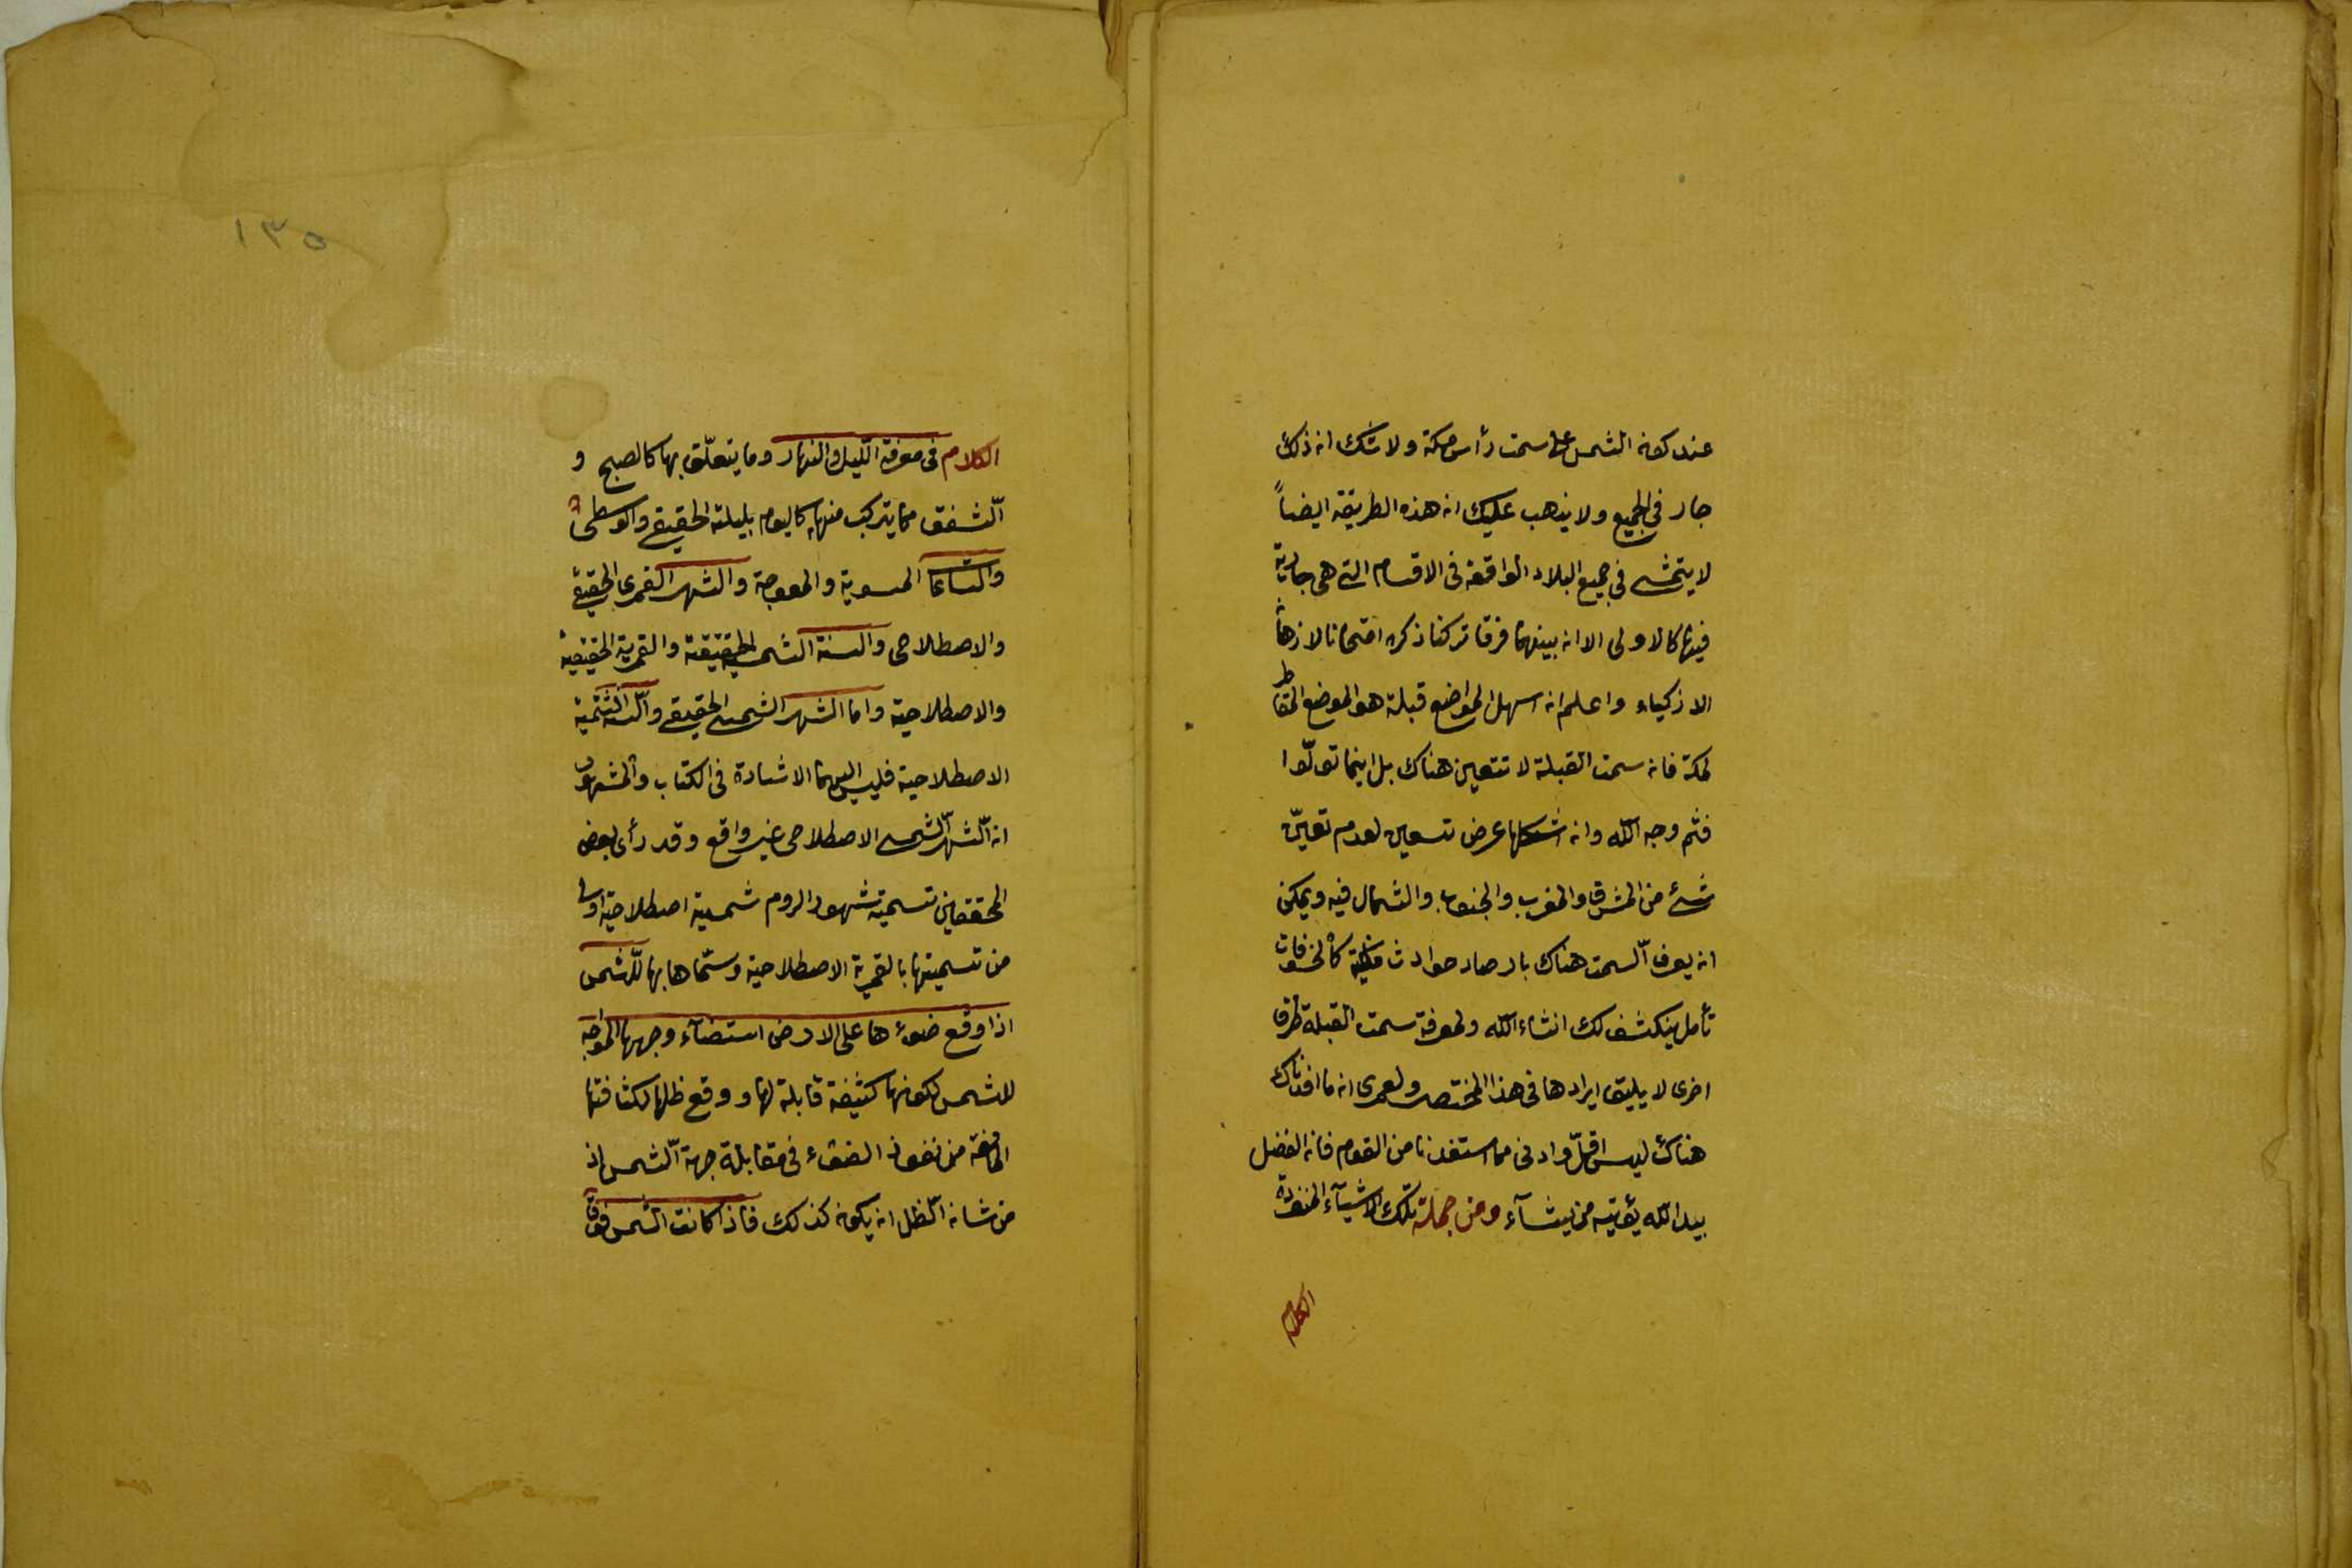 عند كون الشمس على سمت رأس مكة ولا شك ان ذلك
جار فى الجميع ولا يذهب عليك ان هذه الطريقة ايضاً
لا يتمشى فى جميع البلاد الواقعة فى الاقسام التى هى جارية
فيها كالاولى الا ان بينهما فرقا تركنا ذكره امتحانا لاذهان
الاذكياء واعلم ان اسهل المواضع قبلة هو الموضع المقاطر
لمكة فان سمت القبلة لا تتعين هناك بل اينما تولّوا
فثم وجه الله وان اشكلها عرض تسعين لعدم تعيّن
شئ من المشرق والمغرب والجنوب والشمال فيه ويمكن
ان يعرف السمت هناك بارصاد حوادث فلكية كالخسوفات
تأمل ينكشف لك انشاء الله ولمعرفة سمت القبلة طرق
اخرى لا يليق ايرادها فى هذا المختصر ولعمرى ان ما افدناك
هناك ليس اقلّ وادنى مما استفدنا من القوم فان الفضل
بيد الله يؤتيه من يشآء ومن جملة تلك الاشيآء المنفردة
الكلام
١٣٥
الكلام فى معرفة اللّيل والنهار وما يتعلّق بها كالصبح و
الشّفق مما يتركب منهما كاليوم بليلته الحقيقى والوسطى
والساعات المستوية والمعوجة والشهر القمرى الحقيقى
والاصطلاحى والسنة الشمسية الحقيقية والقمرية الحقيقية
والاصطلاحية واما الشهر الشمسى الحقيقى والسّنة الشّمسية
الاصطلاحية فليس اليهما الاشارة فى الكتاب والمشهور
ان الشّهر الشّمسى الاصطلاحى غير واقع وقد رأى بعض
المحققين تسمية شهور الروم شمسية اصطلاحية اولى
من تسميتها بالقمرية الاصطلاحية وسمّاها بها للّشمس
اذا وقع ضوءها على الارض استضآء وجهها المواجه
للشمس لكونها كثيفة قابلة لها ووقع ظلها لكثافتها
المانعة من نفوذ الضوء فى مقابلة جهة الشّمس اذ
من شان الظّل ان يكون كذلك فاذا كانت الشّمس فوق